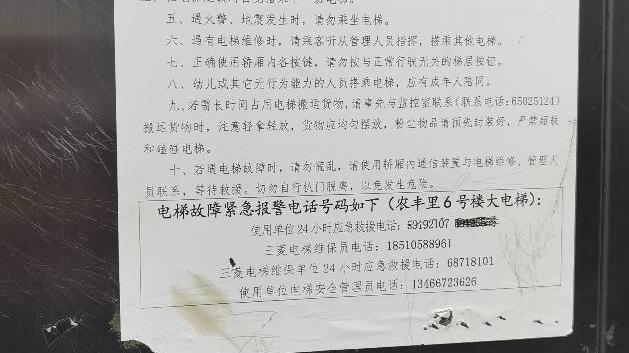 五、遇火警、地震发生时,请勿乘坐电梯。
六、遇有电梯维修时,请乘客听从管理人员指挥,搭乘其他电梯。
七、正确使用轿厢内各按键,请勿按与正常行驶无关的梯层按钮。
八、幼儿或其它无行为能力的人员搭乘电梯,应有成年人陪同。
九、若需长时间占用电梯搬运货物,请事先与监控室联系(联系电话:65025124)
搬运货物时,注意轻拿轻放,货物应均匀摆放,粉尘物品请预先封装好,严禁超载
和磕碰电梯。
十、若遇电梯故障时,请勿慌乱,请使用轿厢内通信装置与电梯维修、管理人
员联系,等待救援。切勿自行扒门脱离,以免发生危险。
电梯故障紧急报警电话号码如下(农丰里6号楼大电梯):
使用单位24小时应急救援电话:89192107
三菱电梯维保员电话:18510588961
三菱电梯维保单位24小时应急救援电话:68718101
使用单位电梯安全管理员电话:13466723626